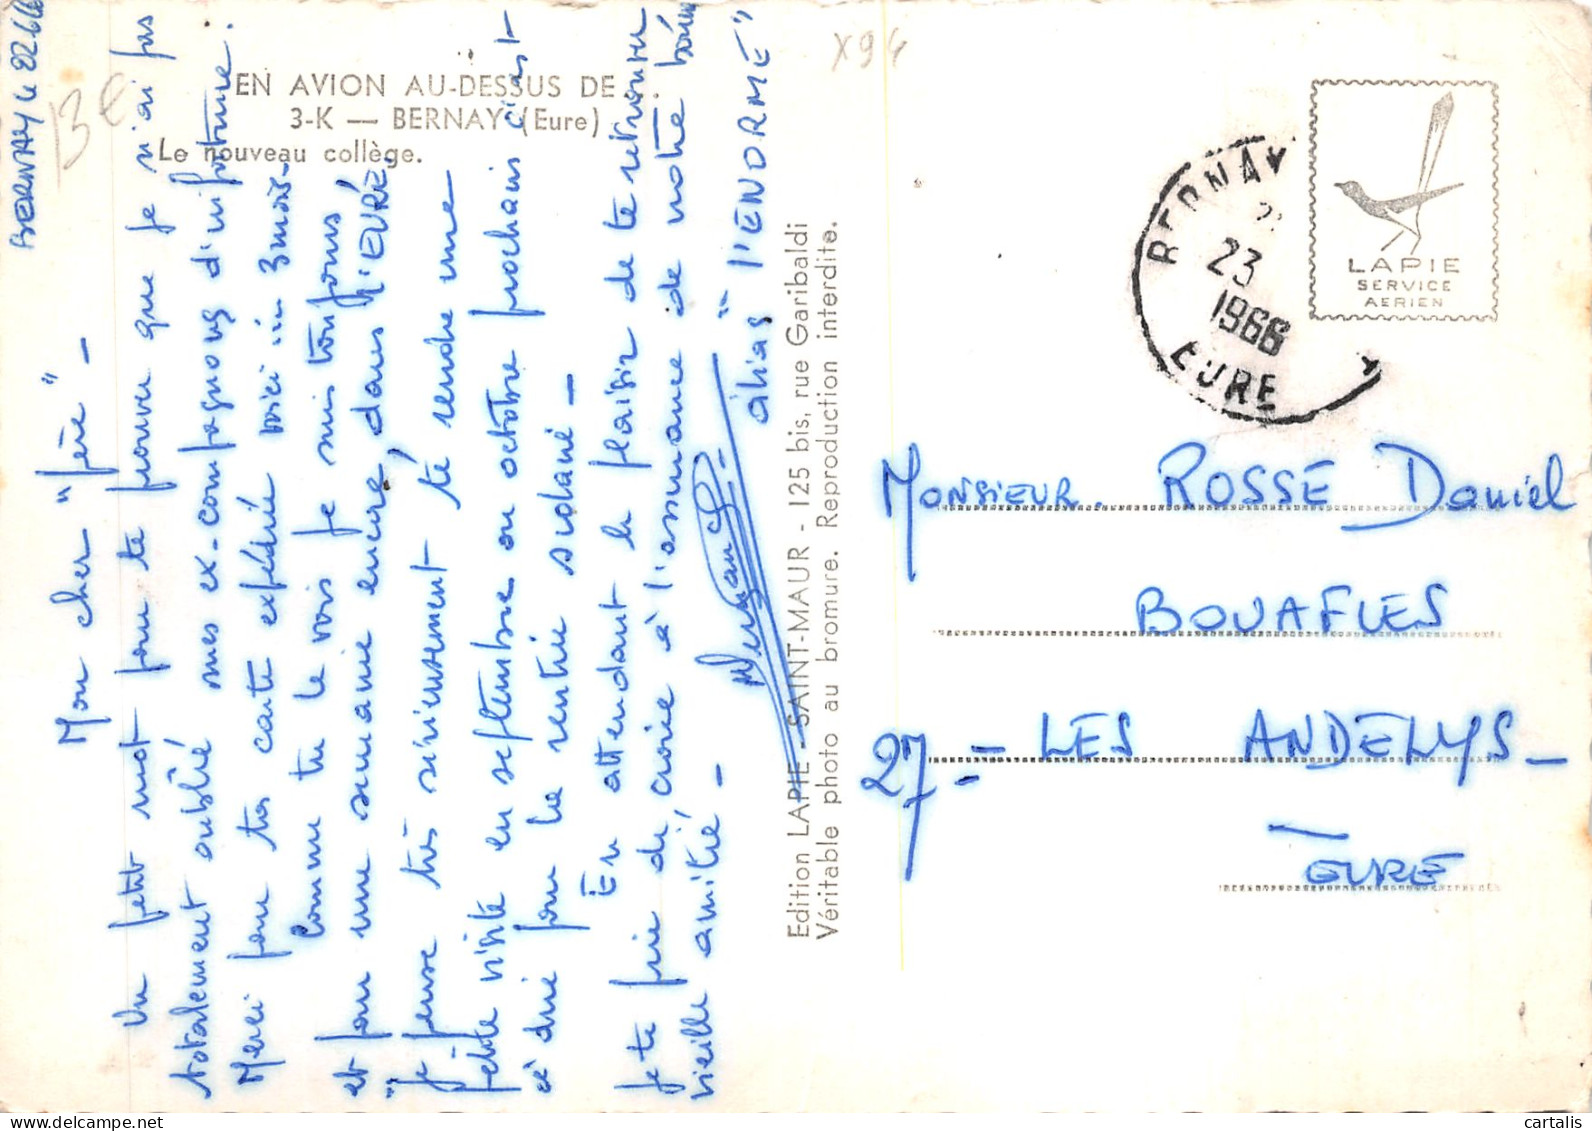 BERNAY le 22 6 66
Mon cher "père" -
Un petit mot pour te prouver que je n'ai pas
totalement oublié mes ex-compagnons d'infortune.
Merci pour ta carte expédiée voici ... 3 mois -
Comme tu le vois je suis toujours,
et pour une semaine encore, dans l'EURE,
je pense très sérieusement te rendre une
petite visite en septembre ou octobre prochain c'est
à dire pour la rentrée scolaire -
En attendant le plaisir de te retrouver
je te prie de croire à l'assurance de notre bonne
vieille amitié -
alias "l'ENORME"
EN AVION AU-DESSUS DE...
3-K — BERNAY (Eure)
Le nouveau collège.
13 €
X94
Edition LAPIE - SAINT-MAUR - 125 bis, rue Garibaldi
Véritable photo au bromure. Reproduction interdite.
BERNAY
23
1966
EURE
LAPIE
SERVICE
AERIEN
MONSIEUR ROSSE Daniel
BOUAFLES
27 - LES ANDELYS -
EURE
cartalis.com